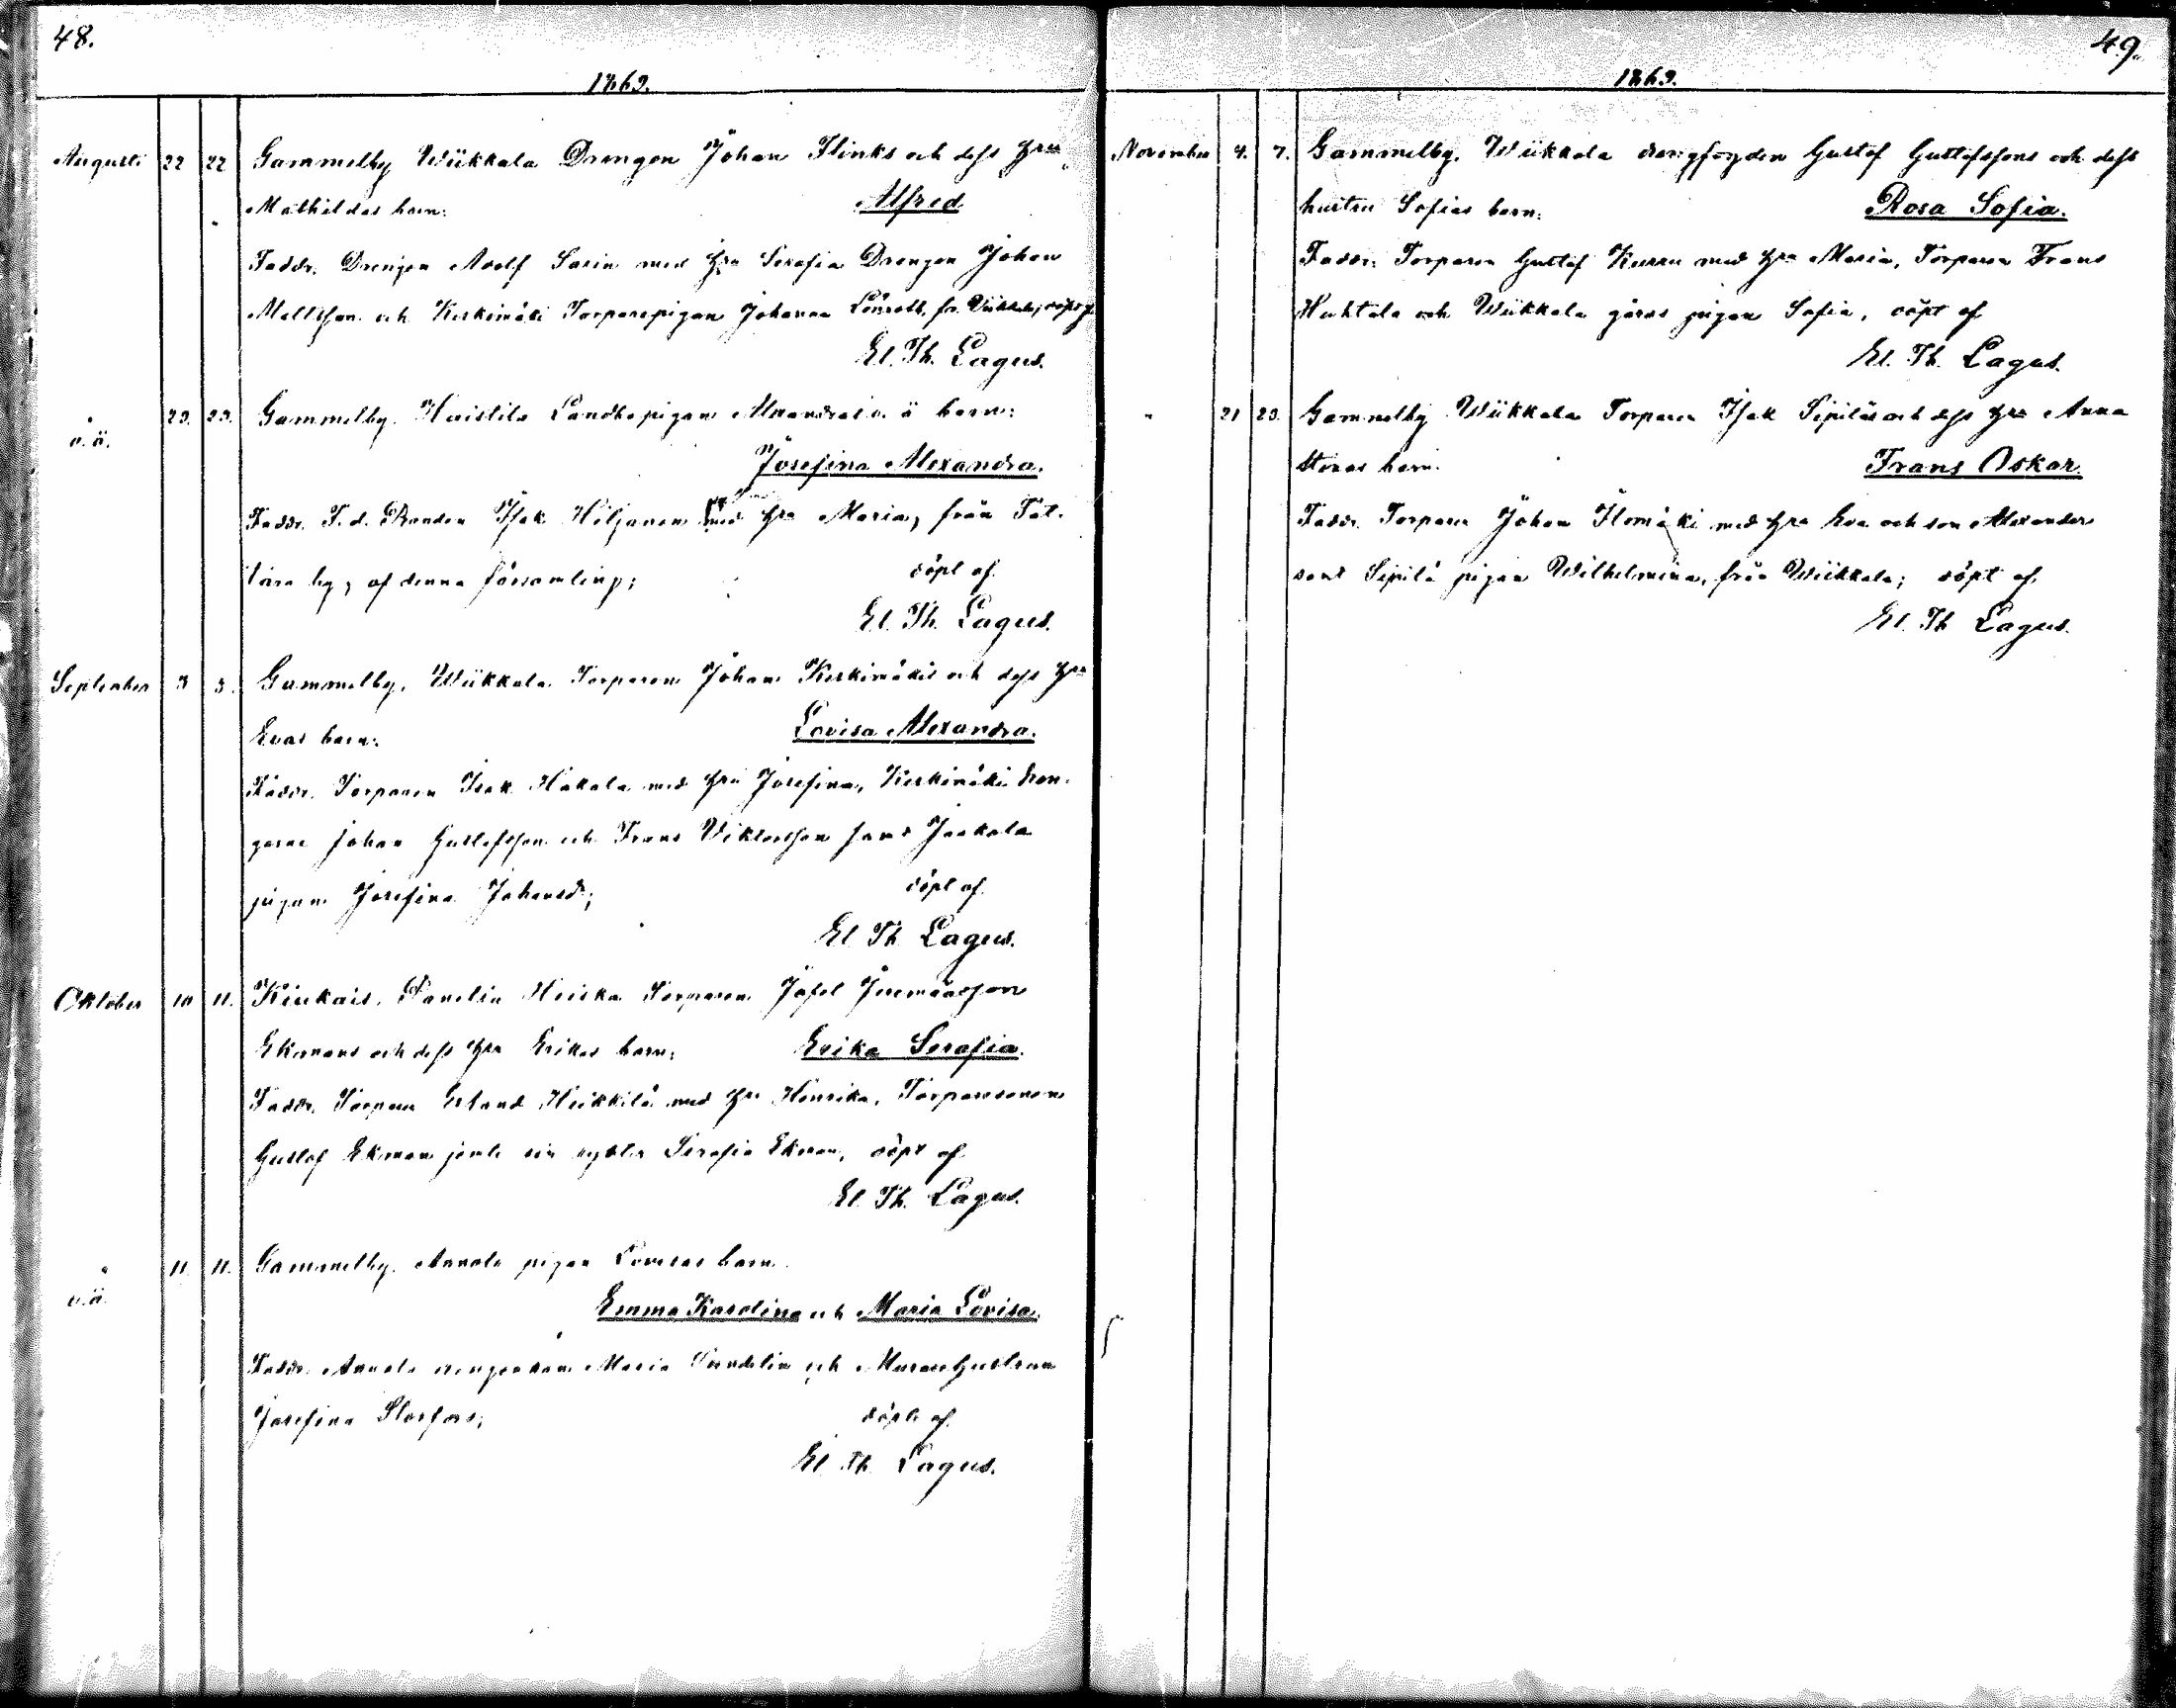 48.
1869.
Augusti 22 22 Gammelby Wiikkala Drengen Johan Flinks och dess hru
Mathildas barn: Alfred
Faddr. Drengen Adolf Sarin med hru Serafia Drengen Johan
Mattsson och Kerkimäki Torparepigan Johanna Lönroth, fr. Wiikkala; döpt af
El. Th. Lagus.
" 23. 23. Gammelby. Haistila Landbopigan Alexandras o. ä barn:
o. ä.
Josefina Alexandra.
Faddr. F. d. Bonden Isak Hiljanen med hru Maria, från Tat-
tara by, af denna församling; döpt af
El. Th. Lagus.
September 3 3. Gammelby. Wiikkala Torparen Johan Kerkimäkis och dess hru
Evas barn: Lovisa Alexandra.
Faddr. Torparen Isak Hakala med hru Josefina, Kerkimäki dren-
garne Johan Gustafsson och Frans Viktorsson samt Jaakola
pigan Josefina Johansdr; döpt af
El Th. Lagus.
Oktober 10 11. Kiukais. Panelia Heiska Torparen Josef Jeremiasson
Ekmans och dess hru Erikas barn; Erika Serafia.
Faddr. Torparen Erland Heikkilä med hru Henrika, Torparesonen
Gustaf Ekman jemte sin syster Serafia Ekman, döpt af
El. Th. Lagus.
" 11. 11. Gammelby. Annola pigan Lovisas barn
o. ä.
Emma Karolina och Maria Lovisa.
Faddr. Annola drengenkan Maria Sundelin och Murarehustrun
Josefina Storfors; döpte af
El. Th. Lagus.
49.
1869.
November 4. 7. Gammelby. Wiikkala drengfogden Gustaf Gustafssons och dess
hustru Sofias barn: Rosa Sofia.
Faddr: Torparen Gustaf Kurru med hru Maria, Torparen Frans
Huhtala och Wiikkala gårds pigan Sofia, döpt af
El. Th. Lagus.
" 21 23. Gammelby Wiikkala Torparen Isak Sipiläs och dess hru Anna
Stinas barn. Frans Oskar.
Faddr. Torparen Johan Ilomäki med hru Eva och son Alexander
samt Sipilä pigan Wilhelmina, från Wiikkala; döpt af.
El. Th Lagus.